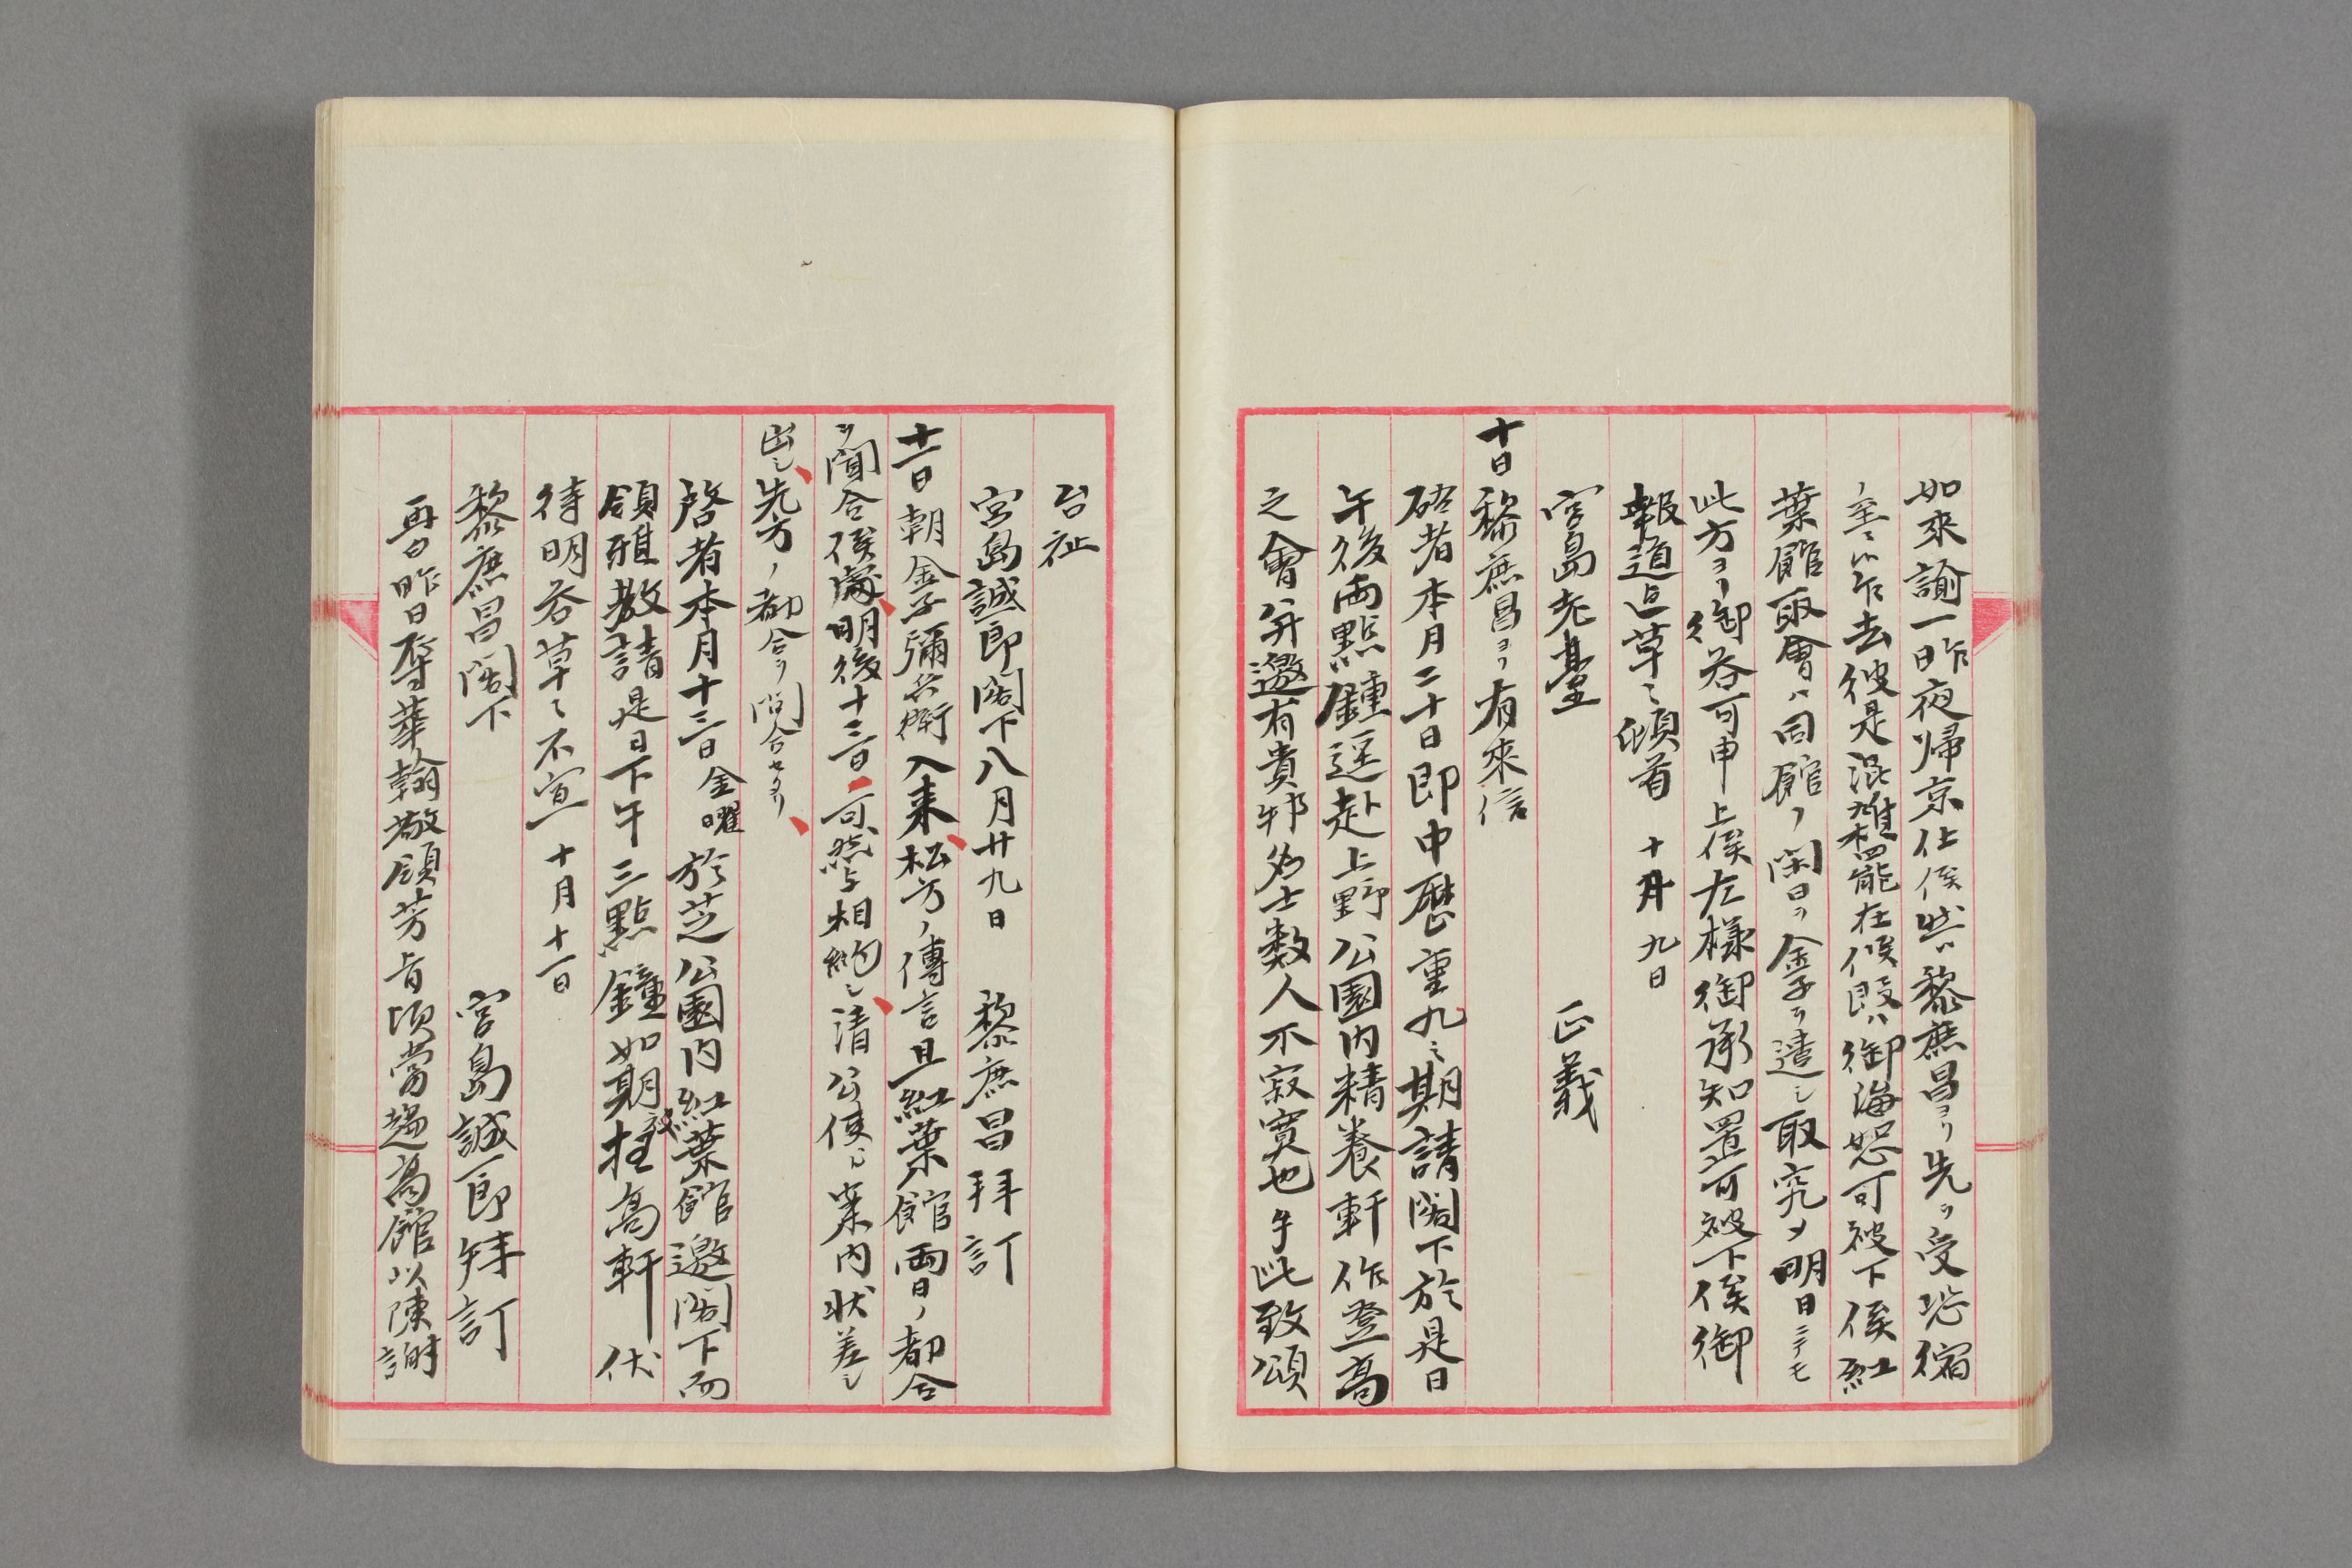 如來諭一昨夜帰京仕候然ハ黎庶昌ヨリ先ツ受恐縮
ノ至ニ候乍去彼是混雑罷在候段ハ御海恕可被下候紅
葉館取會ハ同館ノ閑日ヲ金子ヲ遣シ取究メ明日ニテモ
此方ヨリ御答可申上候左様御承知置可被下候御
報道迄草々頓首　十月九日
宮島老臺　正義
十日黎庶昌ヨリ有來信
啓者本月二十日即中歴重九之期請閣下於是日
午後両點鐘逕赴上野公園内精養軒作登高
之會并邀有貴邦名士数人不寂寞也手此致頌
台祉
宮島誠一郎閣下八月廿九日　黎庶昌拜訂
十一日朝金子彌兵衛入来松方ノ傳言且紅葉館両日ノ都合
ヲ聞合候處明後十三日可然与相約シ清公使ニ案内状差シ
出シ先方ノ都合ヲ問合セタリ
啓者本月十三日金曜於芝公園内紅葉館邀閣下而
領雅教請是日下午三點鐘如期枉高軒伏
待明答草々不宣　十月十一日
黎庶昌閣下　宮島誠一郎拜訂
再曰昨日辱華翰敬領芳旨頃當趨高館以陳謝